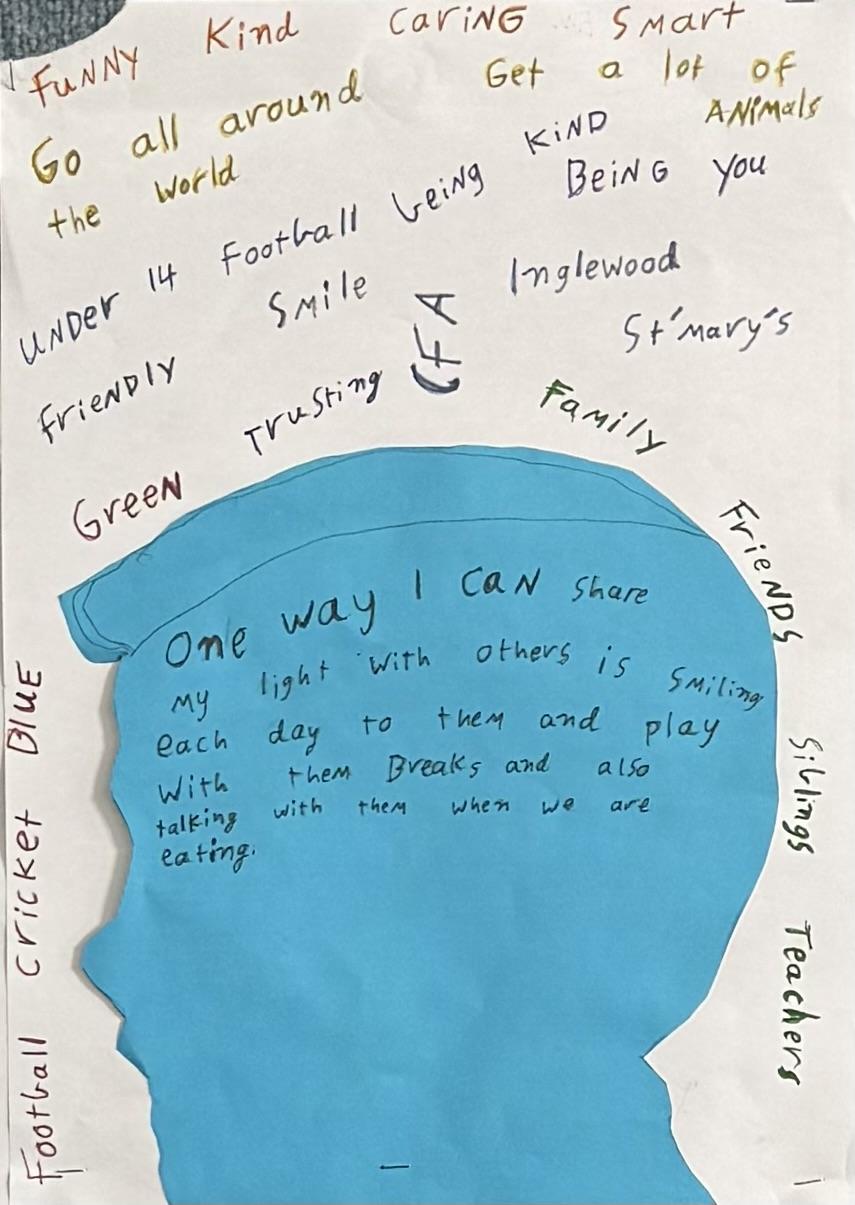 FUNNY Kind CARiNG SMart
Go all around
the world
Get a lot of
ANiMals
UNDer 14 Football being KiND
BeiNG You
SMile
frieNDlY
Trusting
CFA
Inglewood
St'Mary's
GreeN
Family
FrieNDS
Siblings
Teachers
Football cricket BluE
One way I caN share
my light with others is smiling
each day to them and play
with them Breaks and also
talking with them when we are
eating.